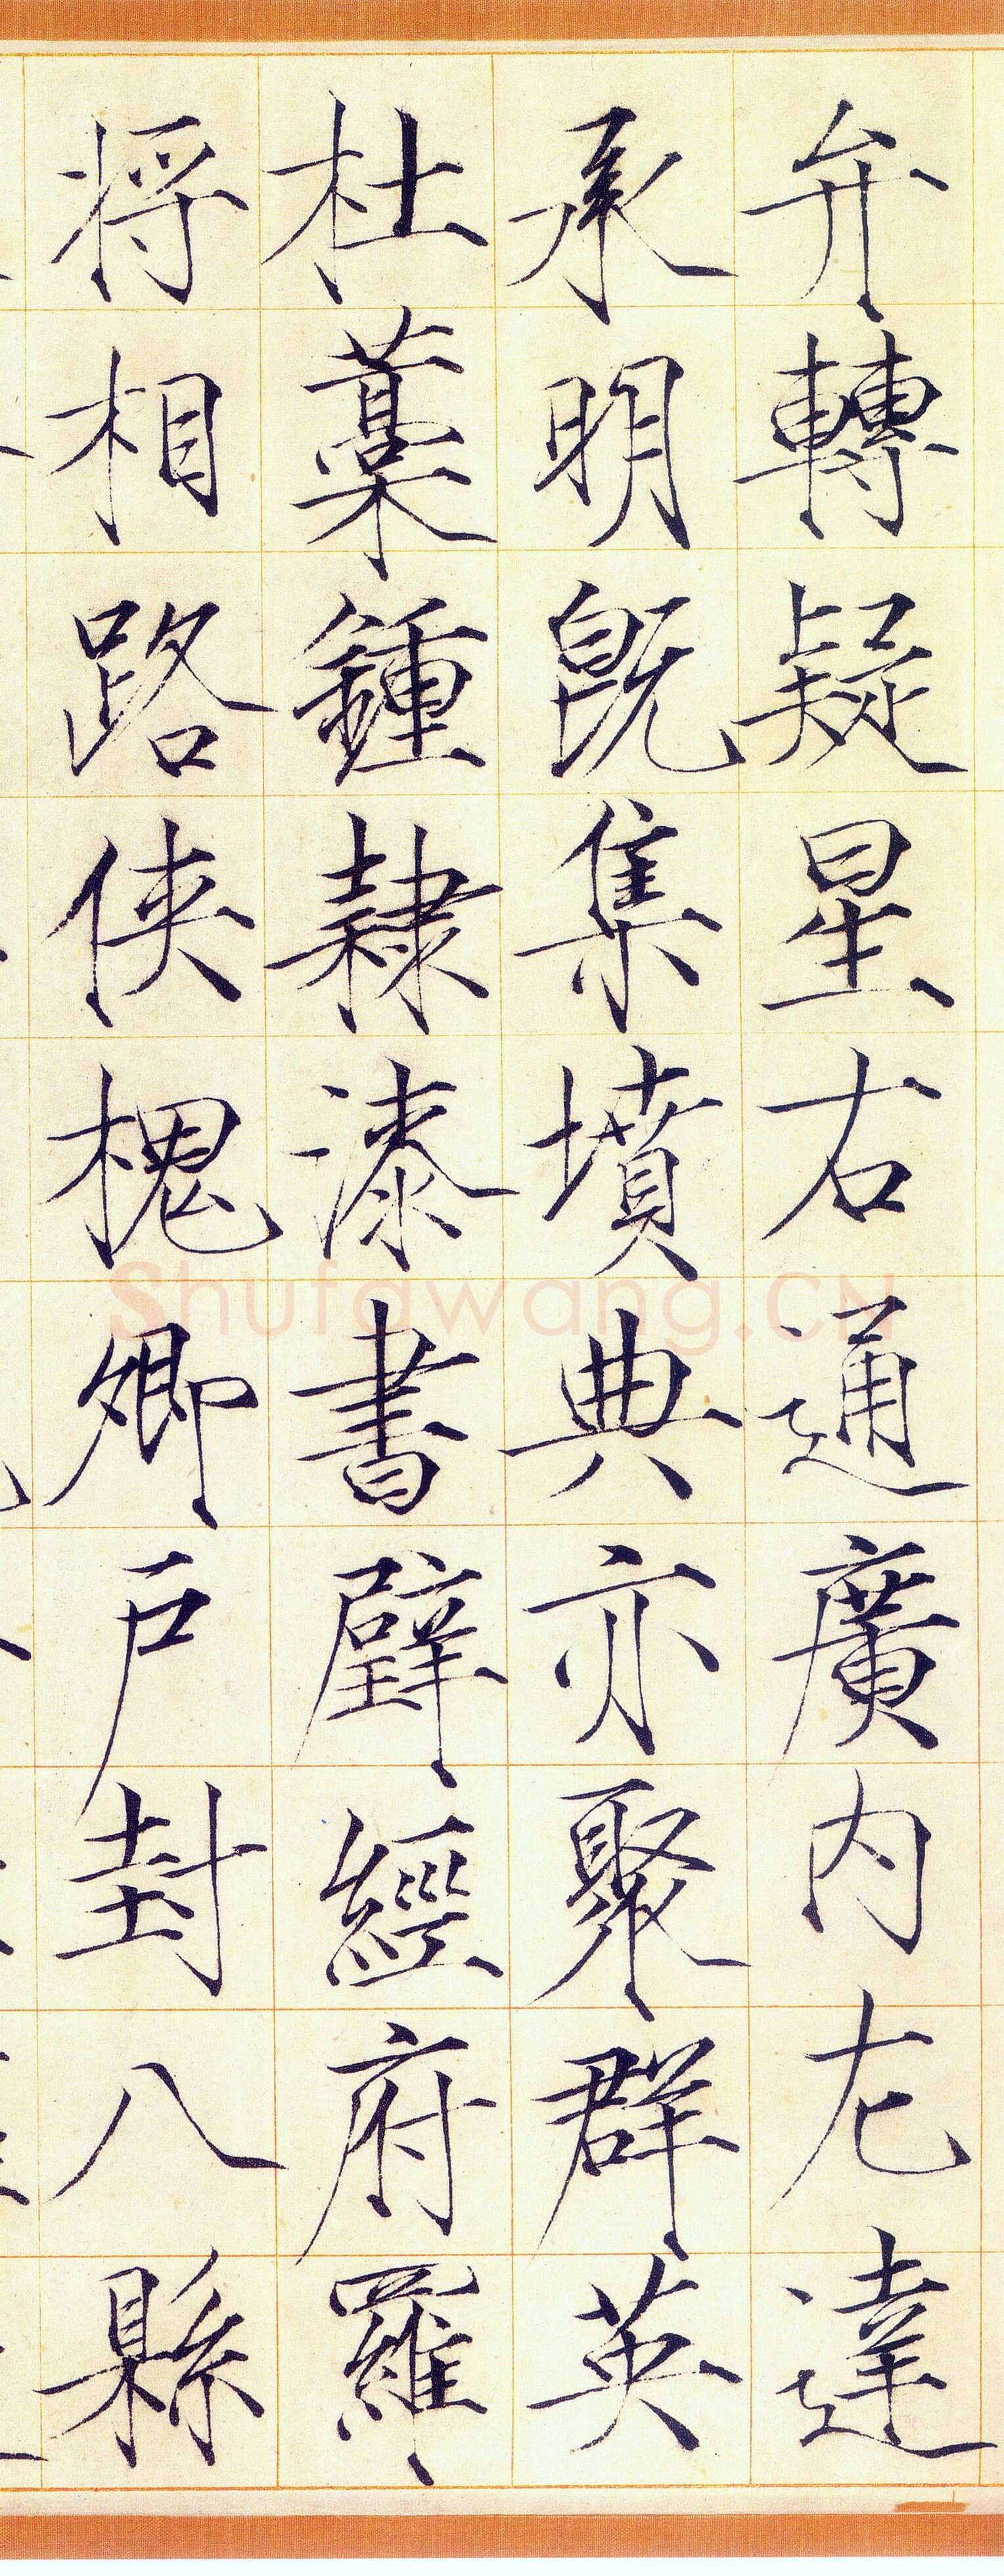 弁轉疑星右通廣内左達
承明既集墳典亦聚群英
杜藁鍾隸漆書壁經府羅
将相路俠槐卿戶封八縣
Shufawang.CN